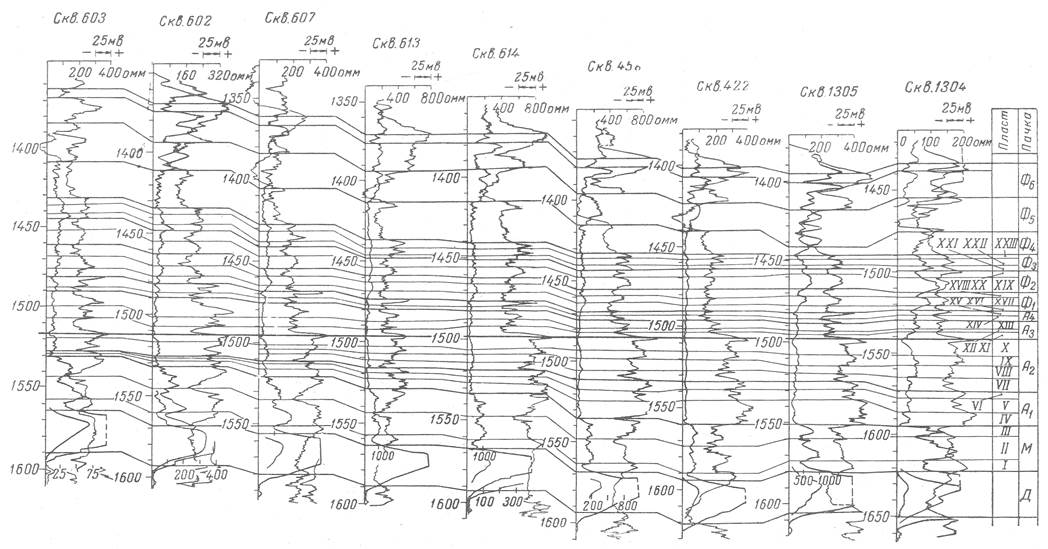 Скв.603
25мв
- +
200 400омм
1400
1450
1500
1550
1600
25 75
Скв.602
25мв
- +
160 320омм
1400
1450
1500
1550
1600
200 400
Скв.607
25мв
- +
200 400омм
1350
1400
1450
1500
1550
1600
Скв.613
25мв
- +
400 800омм
1350
1400
1450
1500
1550
1000
1600
Скв.614
25мв
- +
400 800омм
1400
1450
1500
1550
1000
100 300
1600
25мв
- +
400 800омм
1400
1450
1500
1550
1600
200 800
1600
Скв.422
25мв
- +
200 400омм
1400
1450
1500
1550
1600
Скв.1305
25мв
- +
200 400омм
1400
1450
1500
1550
500 1000
1600
Скв.1304
-25мв+
0 100 200омм
1450
1500
1550
1600
1650
Пласт
Пачка
Ф6
Ф5
XXI XXII XXIII Ф4
Ф3
XVIII XX XIX Ф2
XV XVI XVII Ф1
А4
XIV XIII А3
XII XI X
IX А2
VIII
VII
VI V А1
IV
III
II М
I
Д